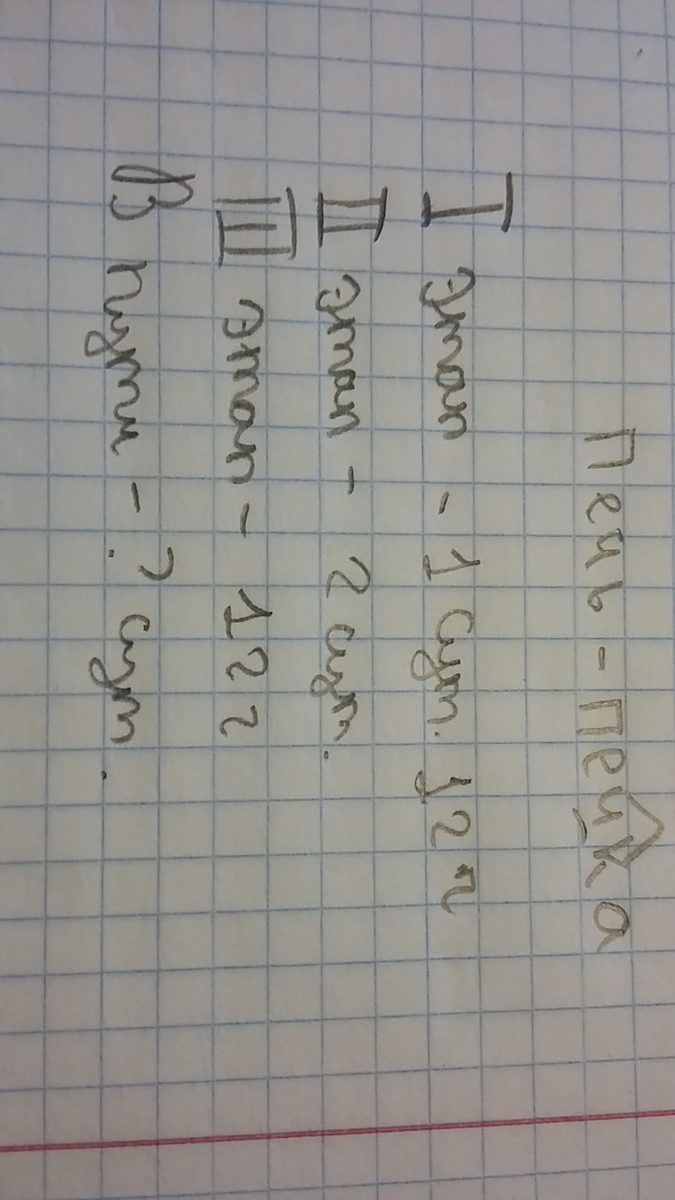 Печь - Печка
I этап - 1 сут. 12 ч
II этап - 2 сут.
III этап - 12 ч
В пути - ? сут.